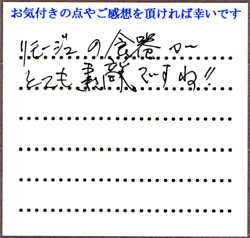 お気付きの点やご感想を頂ければ幸いです
リモージュの食器が
とても素敵ですね!!